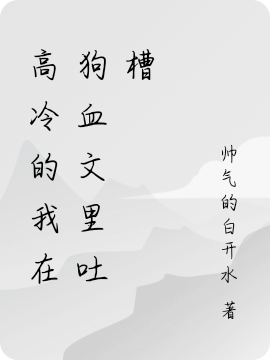 高冷的我在
狗血文里吐
槽
帅气的白开水 著